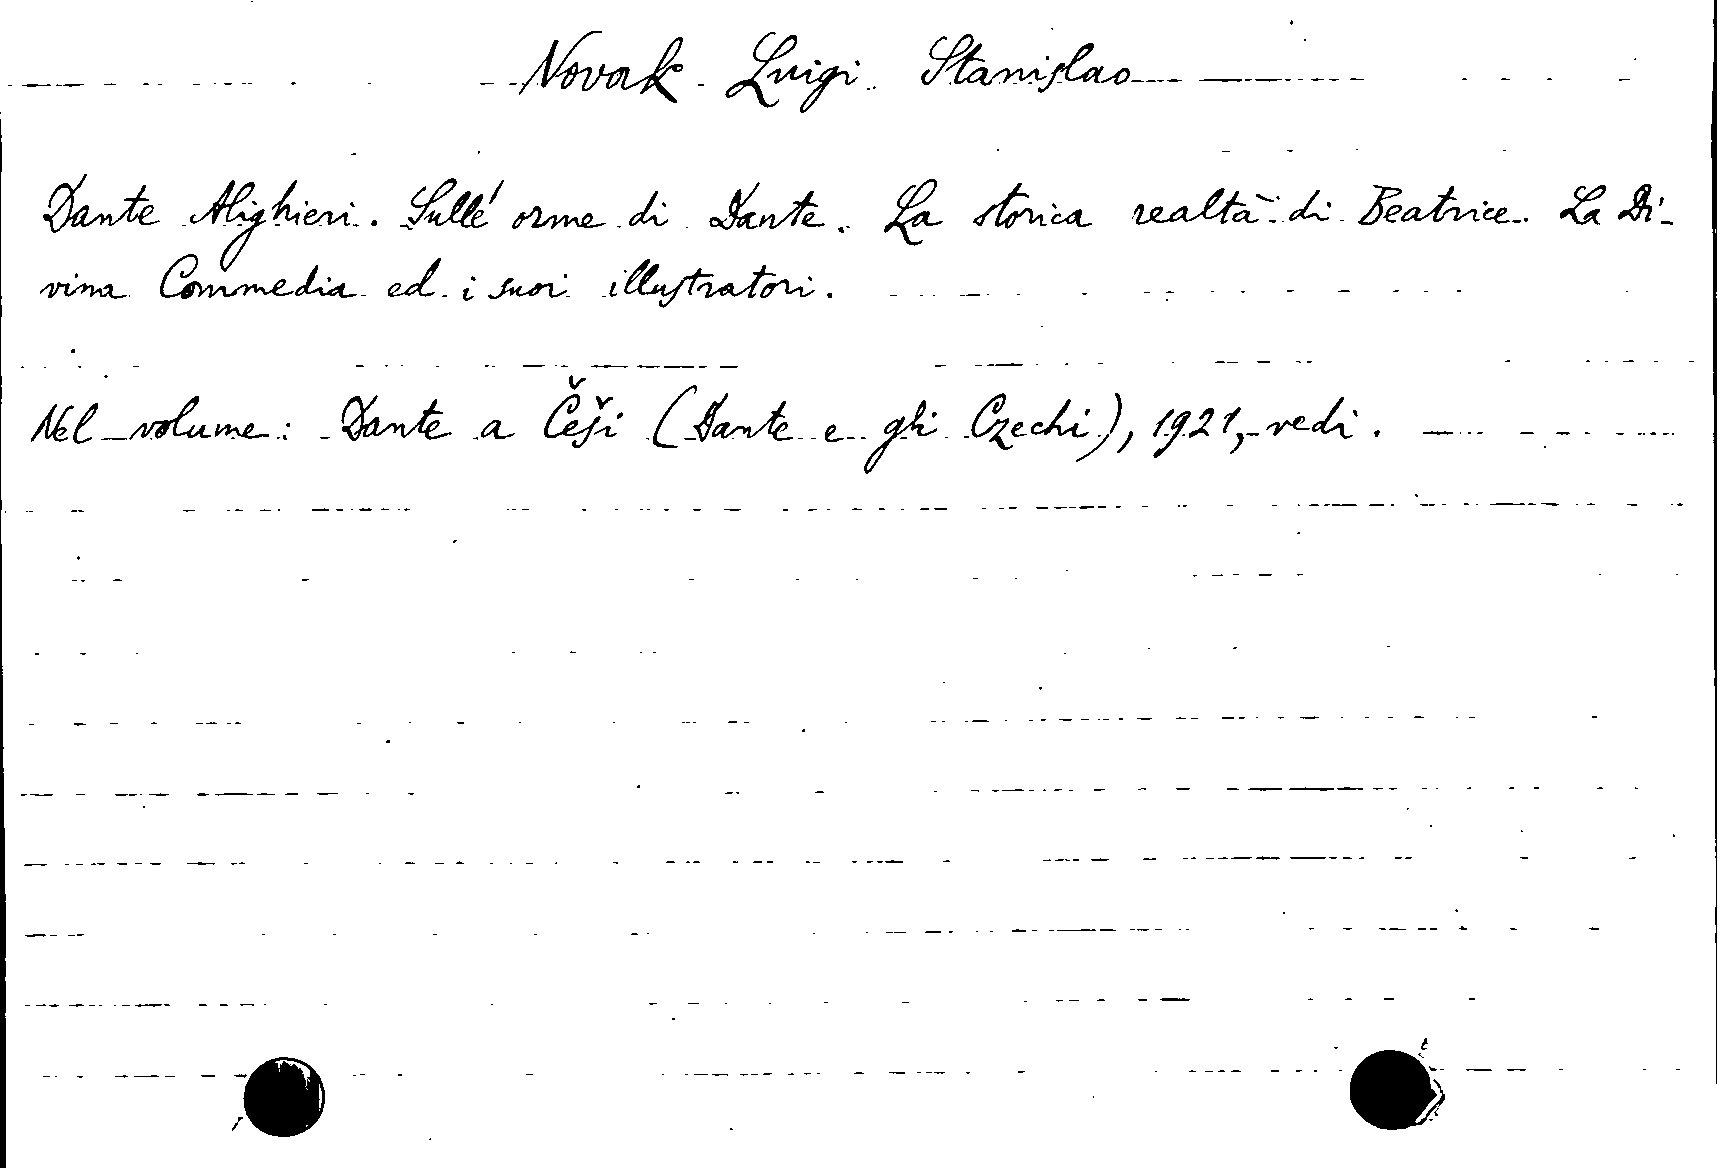 Novak Luigi Stanislao
Dante Alighieri. Sulle' orme di Dante. La storica realtà di Beatrice. La Di-
vina Commedia ed i suoi illustratori.
Nel volume: Dante a Češi (Dante e gli Czechi), 1921, vedi.